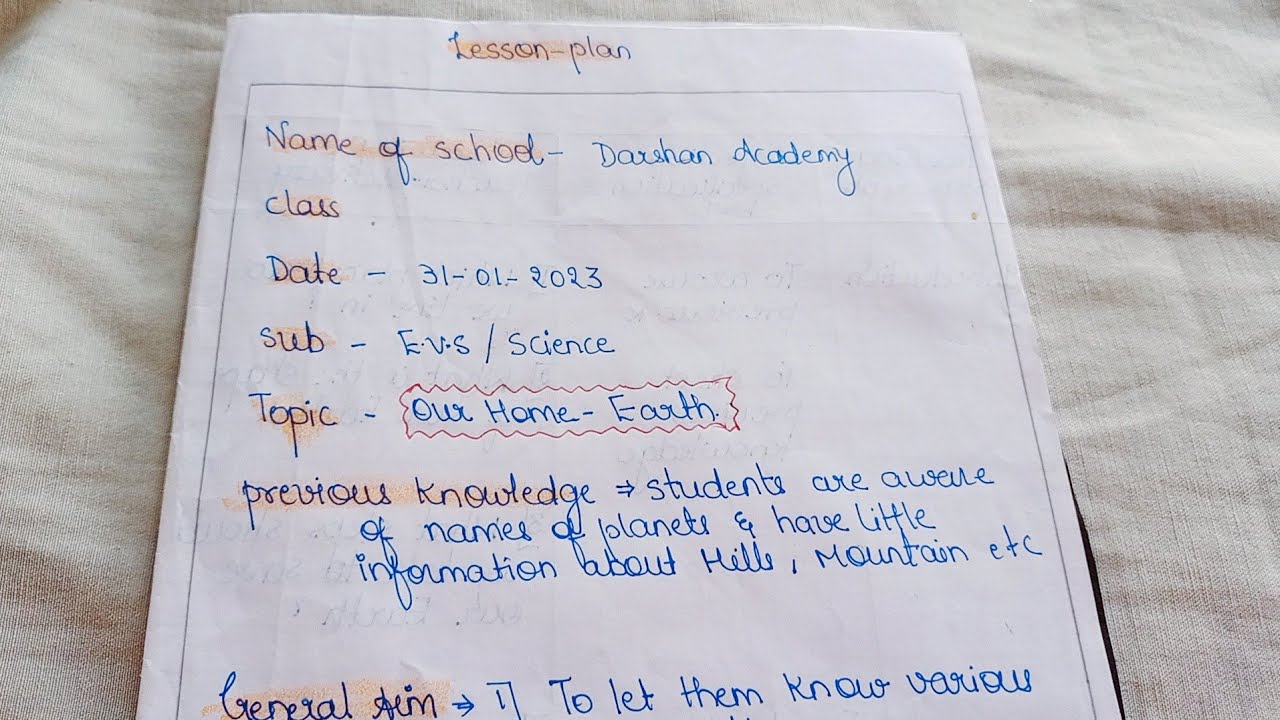 Lesson-plan
Name of school - Darshan Academy
class
Date - 31-01-2023
Sub - E.V.S / Science
Topic - Our Home - Earth.
previous knowledge ⇒ students are aware
of names of planets & have little
information about Hills, Mountain etc
General Aim → 1) To let them know various